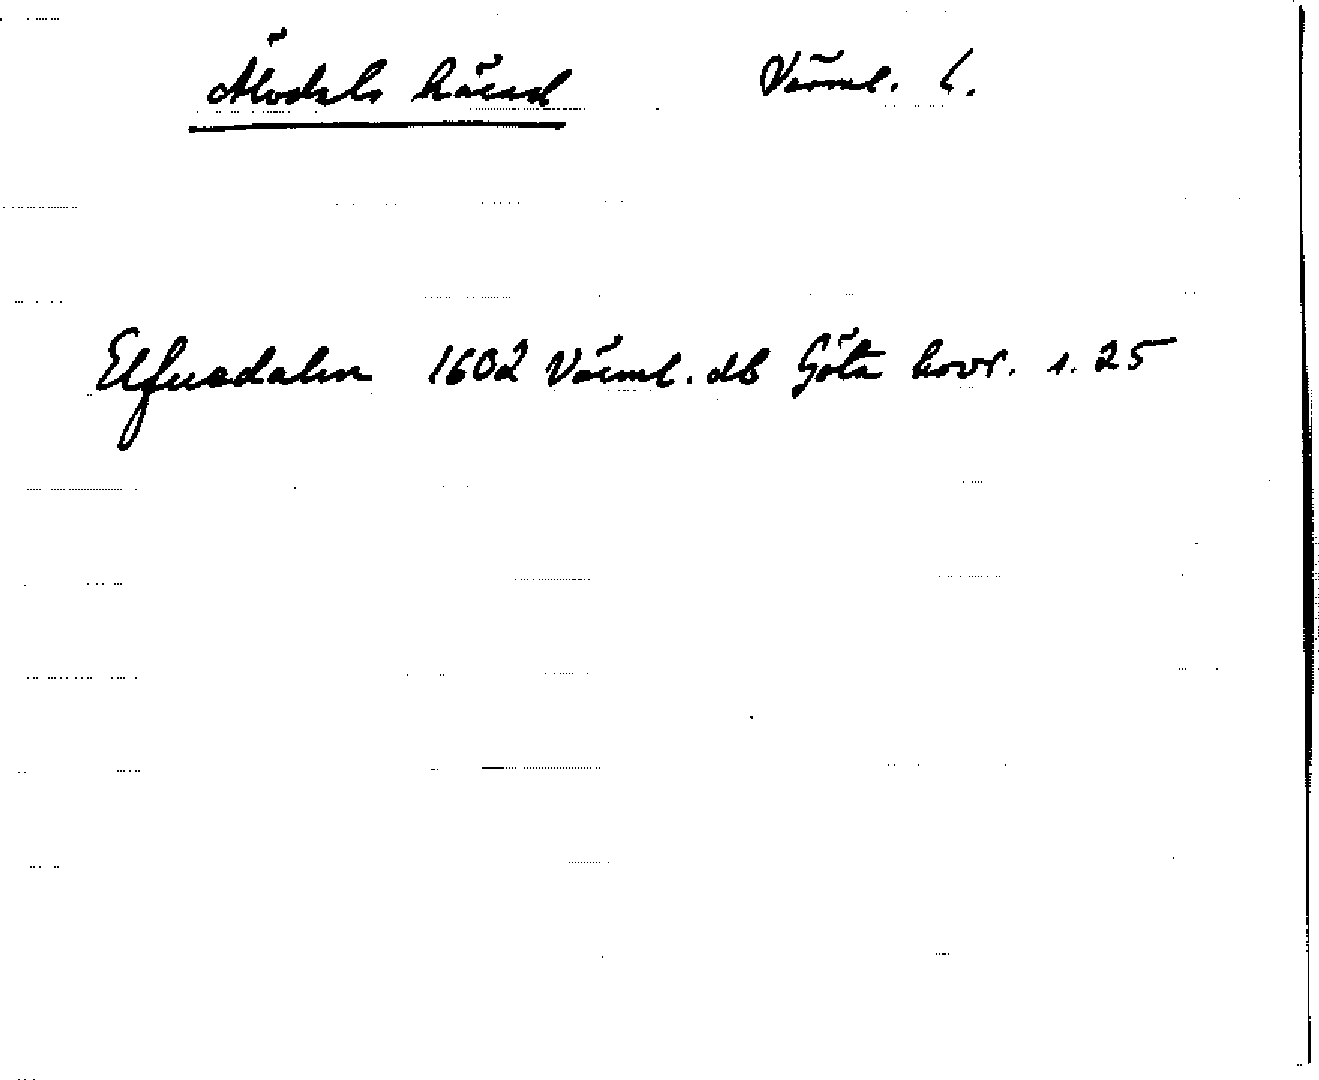 Älvdals härad Värml. l.
Elfuadalen 1602 Värml. db Göta hovr. s. 25